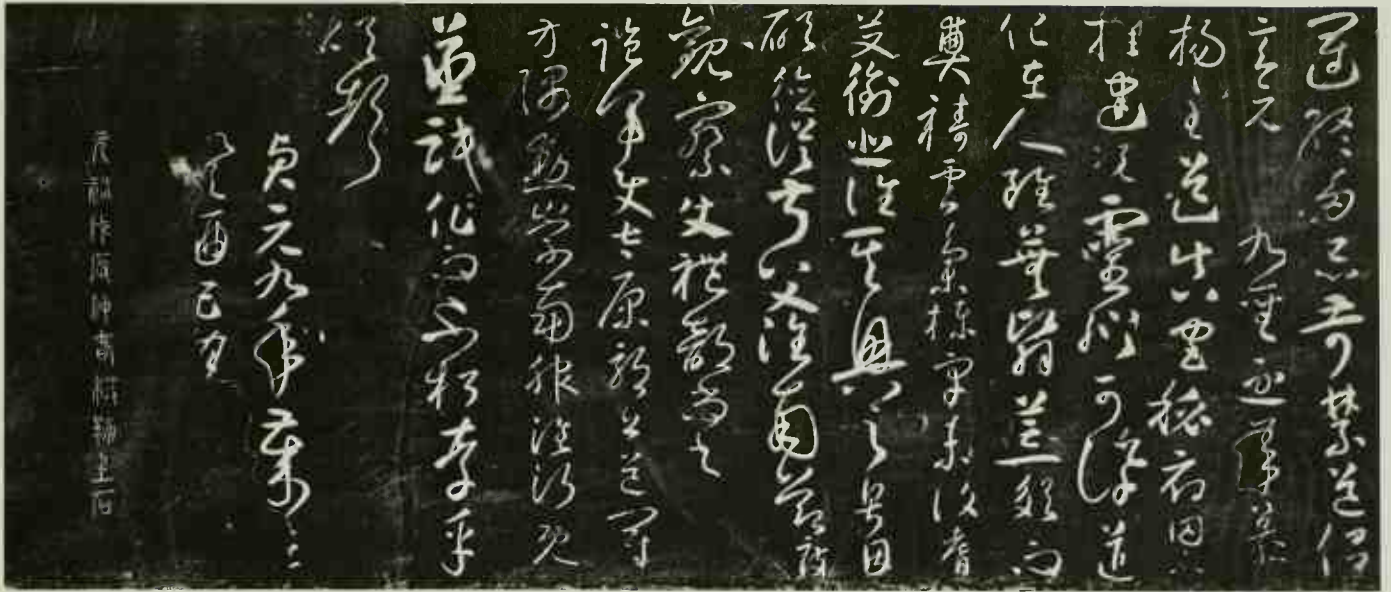 運終多忌苛禁道侶
玄元九聖丕承慕
揚至道真宮秘府罔不
旌建況靈蹤可訊道
化在人雖蕪翳荒郊而
奠禱雲集棟宇未復耆
艾銜悲誰其興之粵因
碩德從叔父淮南節度
觀察使禮部尚書
監軍使太原郭公道冠
方隅勳崇南服淮沂既
蒸識作而不朽存乎
頌聲
貞元九年歲在
癸酉五月
元祐戊辰仲春模勒上石